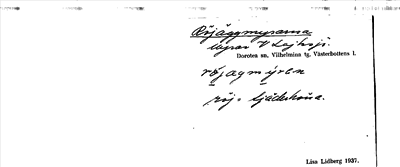 Röjägmyrarna
lappar V Lajksjö.
Dorotea sn, Vilhelmina tg, Västerbottens l.
röjagmýren
röj = tjäderhöna.
Lisa Lidberg 1937.